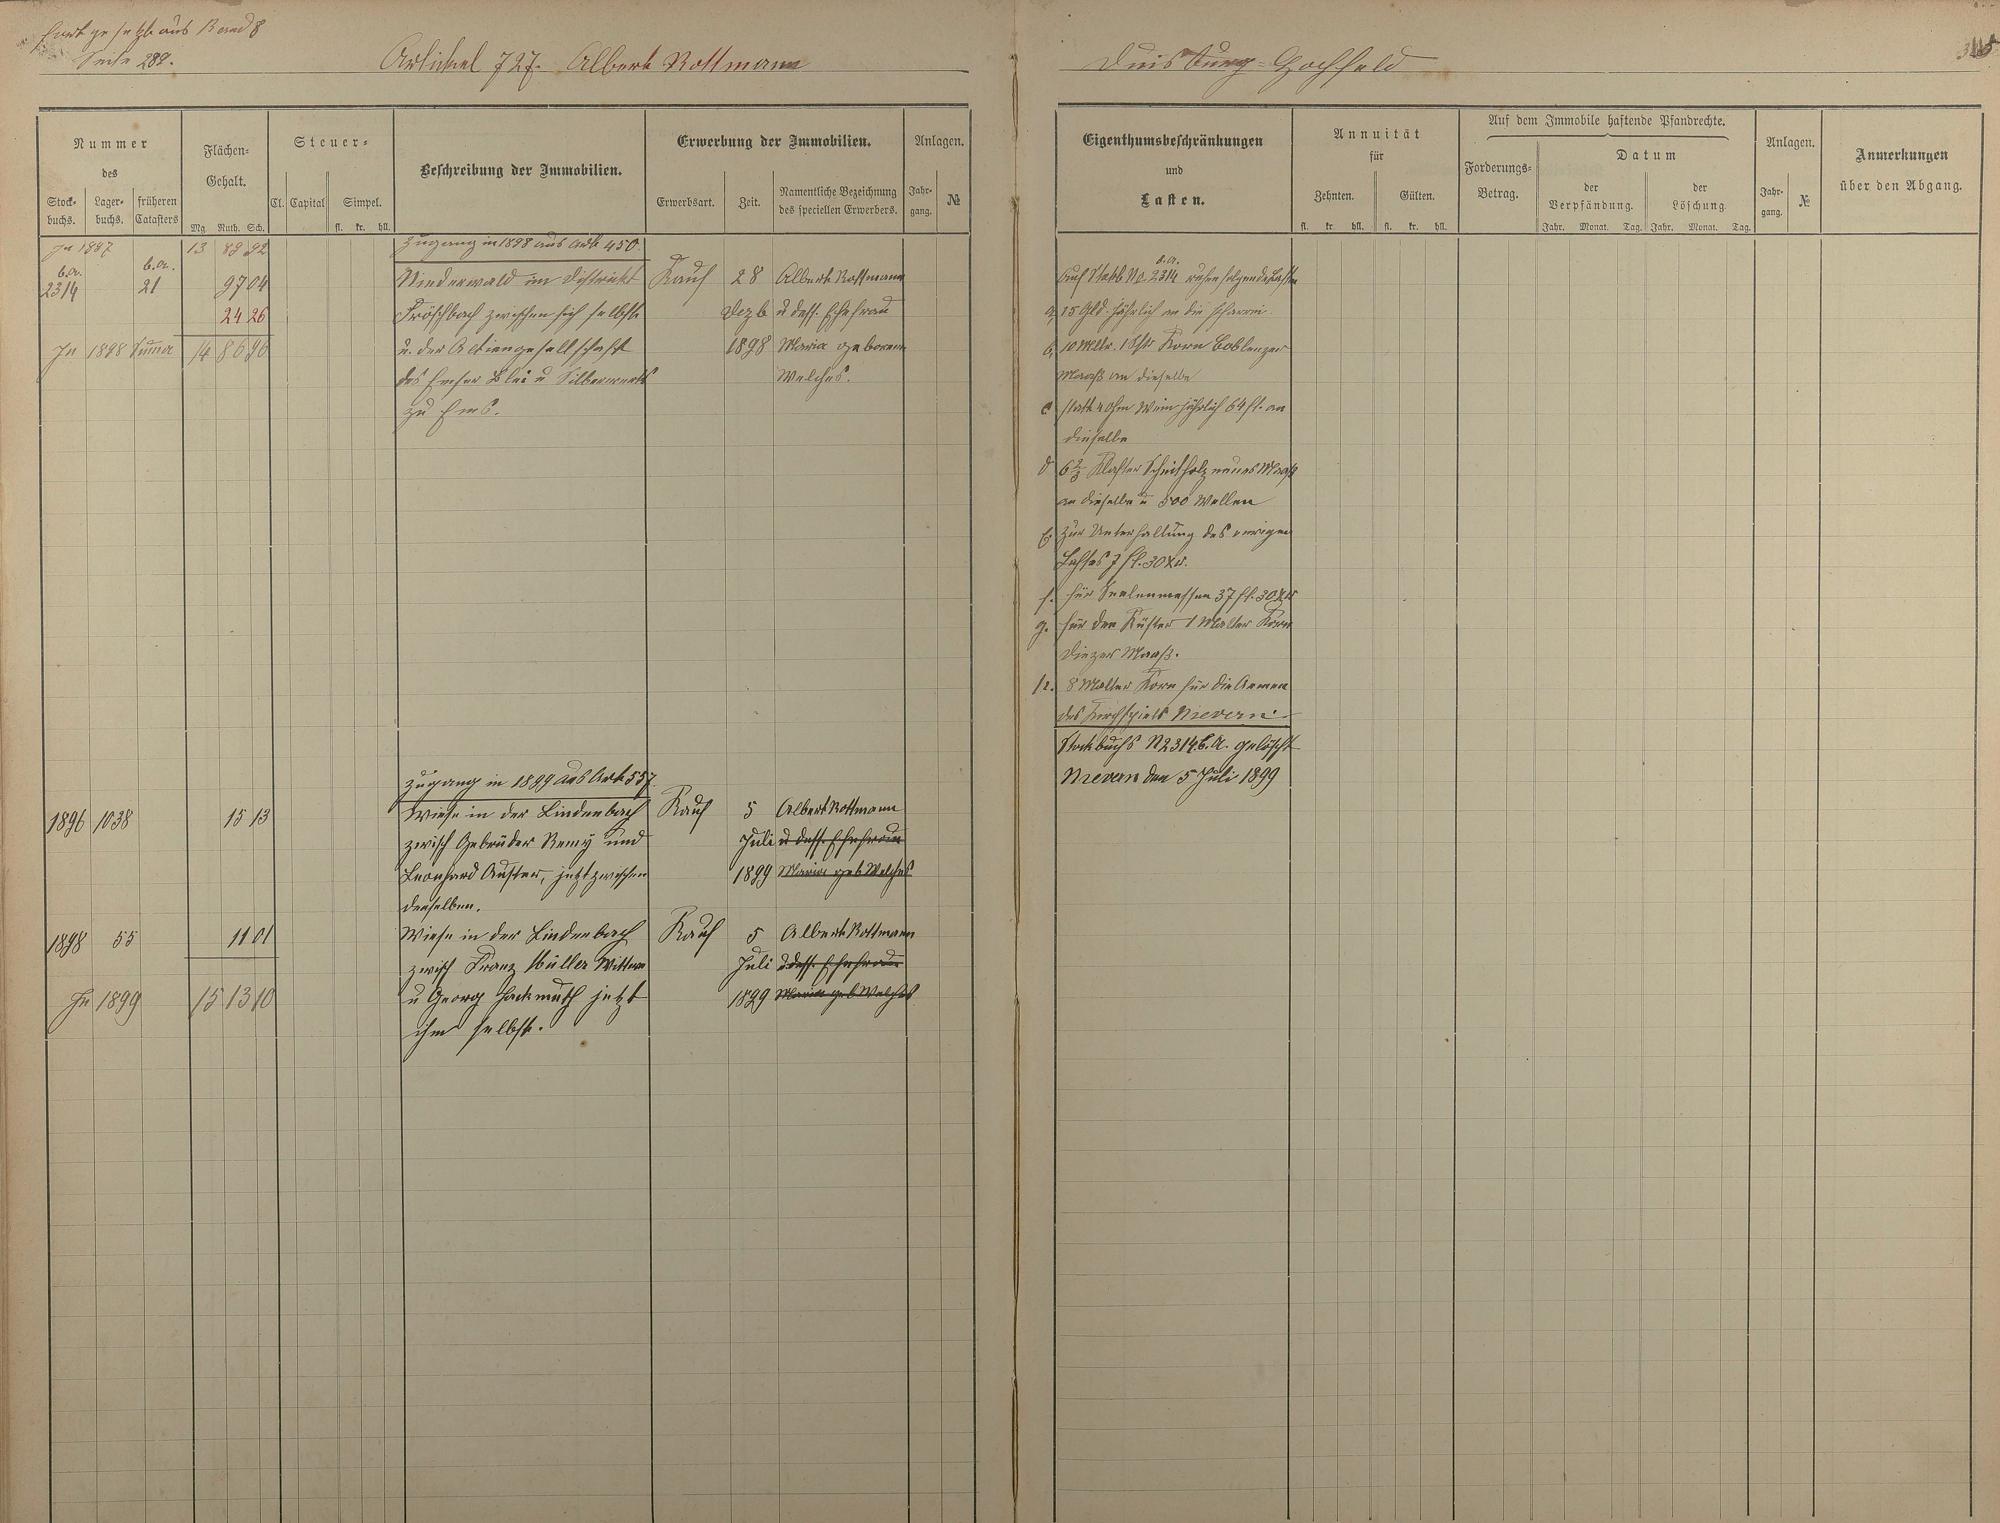 Fortgesetzt aus Band 8
Seite 289.
Artickel 727. Albert Rottmann
Duisburg-Hochfeld
Nummer
des
Stock-
buchs.
Lager-
buchs.
früheren
Catasters
Flächen-
Gehalt.
Mg Ruth. Sch.
Steuer-
Cl. Capital Simpel.
fl. kr. hll.
Beschreibung der Immobilien.
Erwerbung der Immobilien.
Erwerbsart. Zeit.
Namentliche Bezeichnung
des speciellen Erwerbers.
Anlagen.
Jahr-
gang.
№
In 1897 13 89 92
Zugang in 1898 aus Art. 450.
b.a. b.a.
2314 21 97 04 Niederwald im Distrikt Kauf 28 Albert Rottmann
24 26 Fröschbach zwischen sich selbst Dezb u dess. Ehefrau
In 1898 Summa 14 86 96 u. der Actiengesellschaft 1898 Maria geborene
des Emser Blei u Silberwerks Welches.
zu Ems.
Zugang in 1899 aus Art 557.
1896 1038 15 13 Wiese in der Lindenbach Kauf 5 Albert Rottmann
zwisch Gebrüder Remy und Juli u dess. Ehefrau
Leonhard Auster, jetzt zwischen 1899 Maria geb Welches
denselben.
1898 55 11 01 Wiese in der Lindenbach Kauf 5 Albert Rottmann
zwisch Franz Müller Wittwe Juli u dess. Ehefrau
In 1899 15 13 10 u Georg Hackmuth jetzt 1899 Maria geb Welches
ihm selbst.
Eigenthumsbeschränkungen
und
Lasten.
Annuität
für
Zehnten. Gülten.
fl. kr. hll. fl. kr. hll.
Auf dem Immobile haftende Pfandrechte.
Forderungs-
Betrag.
Datum
der
Verpfändung.
der
Löschung
Jahr. Monat. Tag. Jahr. Monat. Tag.
Anlagen.
Jahr-
gang.
№
Anmerkungen
über den Abgang.
b.a.
Auf Stockb No. 2314 ruhen folgende Lasten
a, 15 Gld. jährlich an die Pfarrei.
b, 10 Mltr. Korn Coblenzer
Maaß an dieselbe
c statt 4 Ohm Wein jährlich 64 fl. an
dieselbe
d 6 2/3 Klafter Scheitholz neues Maaß
an dieselbe u 500 Wellen
e zur Unterhaltung des ewigen
Lichtes 7 fl. 30 Kr.
f. für Seelenmessen 37 fl. 30 Kr
g. für den Küster 1 Malter Korn
Diezer Maaß.
h. 8 Malter Korn für die Armen
des Kirchspiels Nievern.
Stockbuchs N 2314 b.A. gelöscht
Nievern den 5 Juli 1899